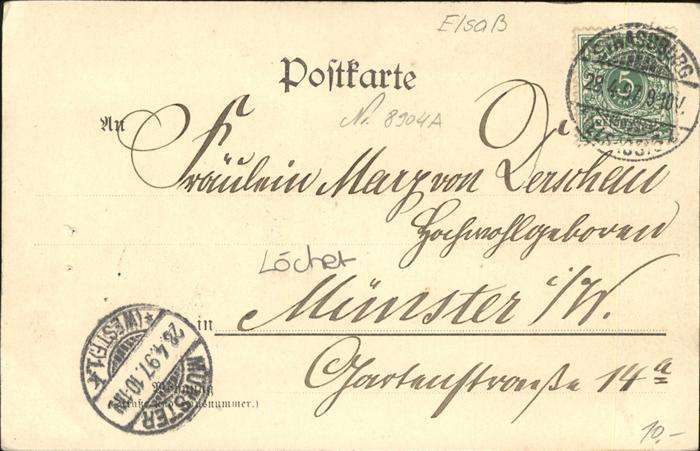 Elsaß
Postkarte
STRASSBURG
28.4.97.9-10V.
5
An
N. 8904A
Fräulein Mary von Derschau
Hochwohlgeboren
Löcher
in Münster i/W.
MÜNSTER
*(WESTF.)1.*
28.4.97.
Gartenstraße 14a
Wohnung
(Straße und Hausnummer.)
10.-